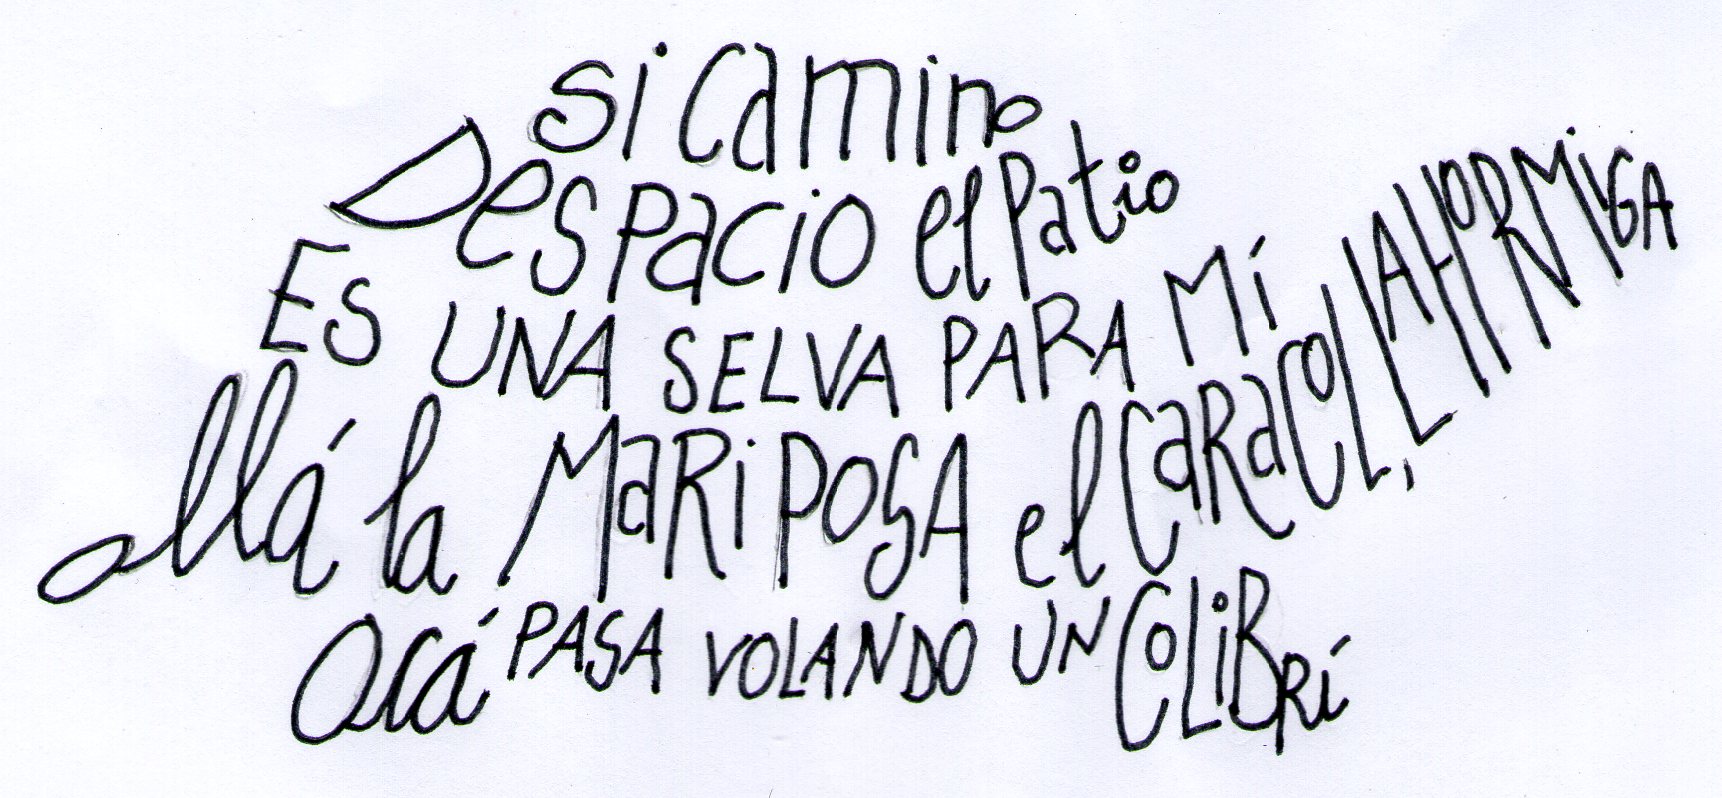 si camino
Despacio el Patio
ES UNA SELVA PARA Mí
allá la MaRiPOSA el CaRaCOL, LA HORMiGA
acá PASA VOLANDO UN COLiBRí